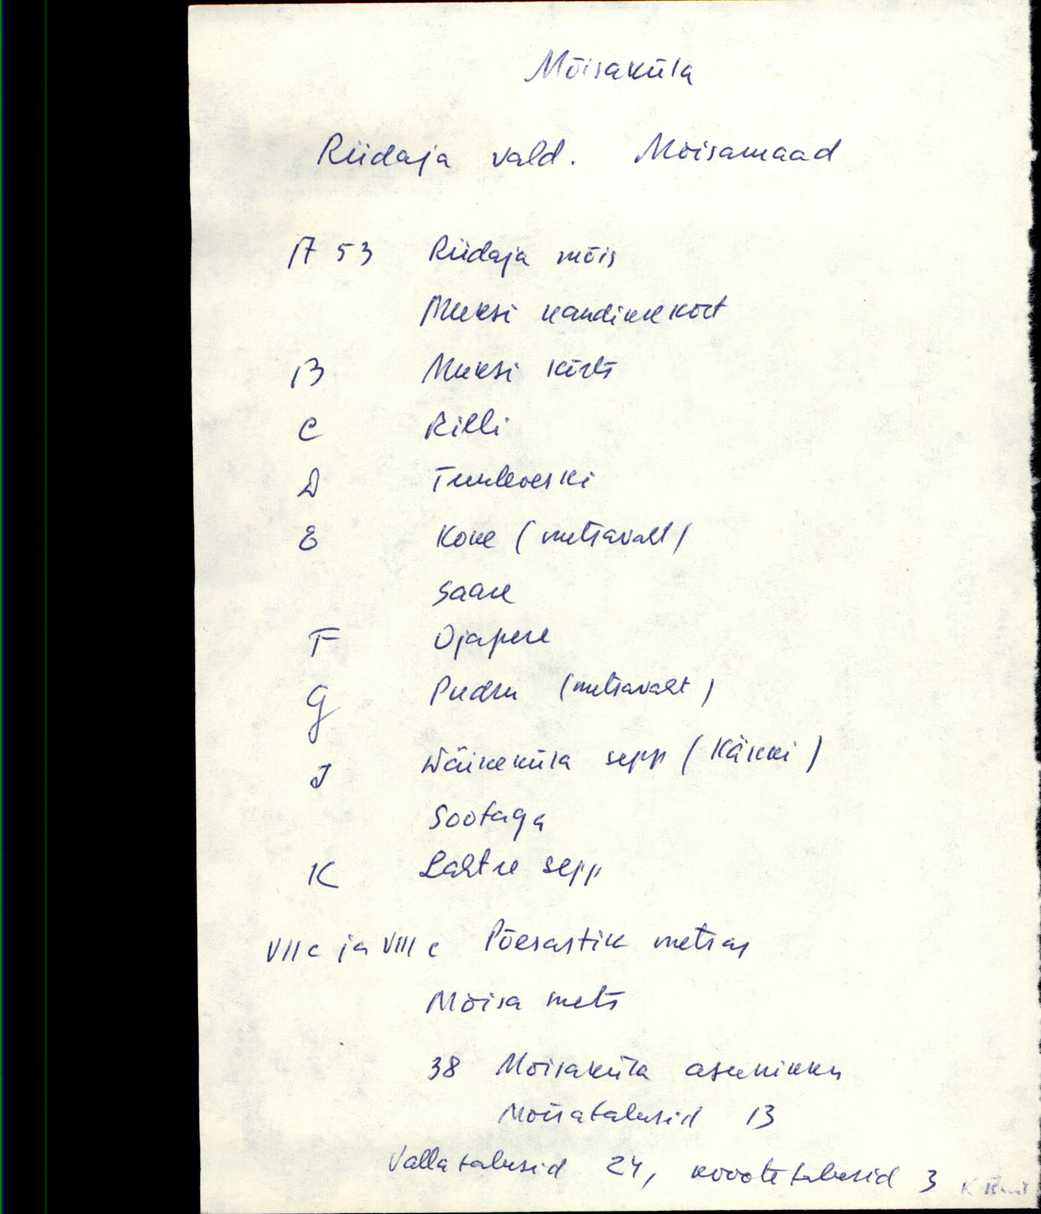 Mõisaküla
Riidaja vald. Mõisamaad
A 53 Riidaja mõis
Muksi kandikukõrt
B Muksi kõrts
C Rilli
D Tuuleveski
E Kone (metsavaht)
Saare
F Ojapere
G Pudru (metsavaht)
J Wäikeküla sepp (Käkki)
Sootaga
K Lahtre sepp
VII c ja VIII c Põesastik metsas
Mõisa mets
38 Mõisaküla asunikku
Mõisatalusid 13
Vallatalusid 24, kvootetalusid 3